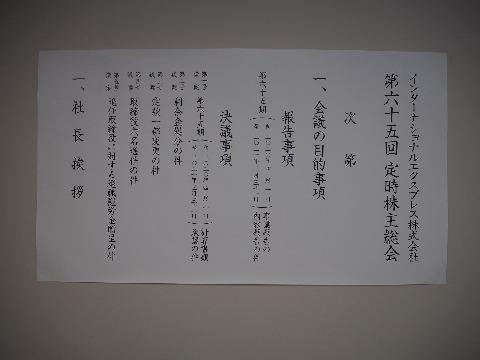 インターナショナルエクスプレス株式会社
第六十五回 定時株主総会
次第
一、会議の目的事項
報告事項
第六十五期
事業報告の
内容報告の件
決議事項
第一号
議案
第六十五期
計算書類
承認の件
第二号
議案
剰余金処分の件
第三号
議案
定款一部変更の件
第四号
議案
取締役六名選任の件
第五号
議案
退任取締役に対する退職慰労金贈呈の件
一、社長挨拶